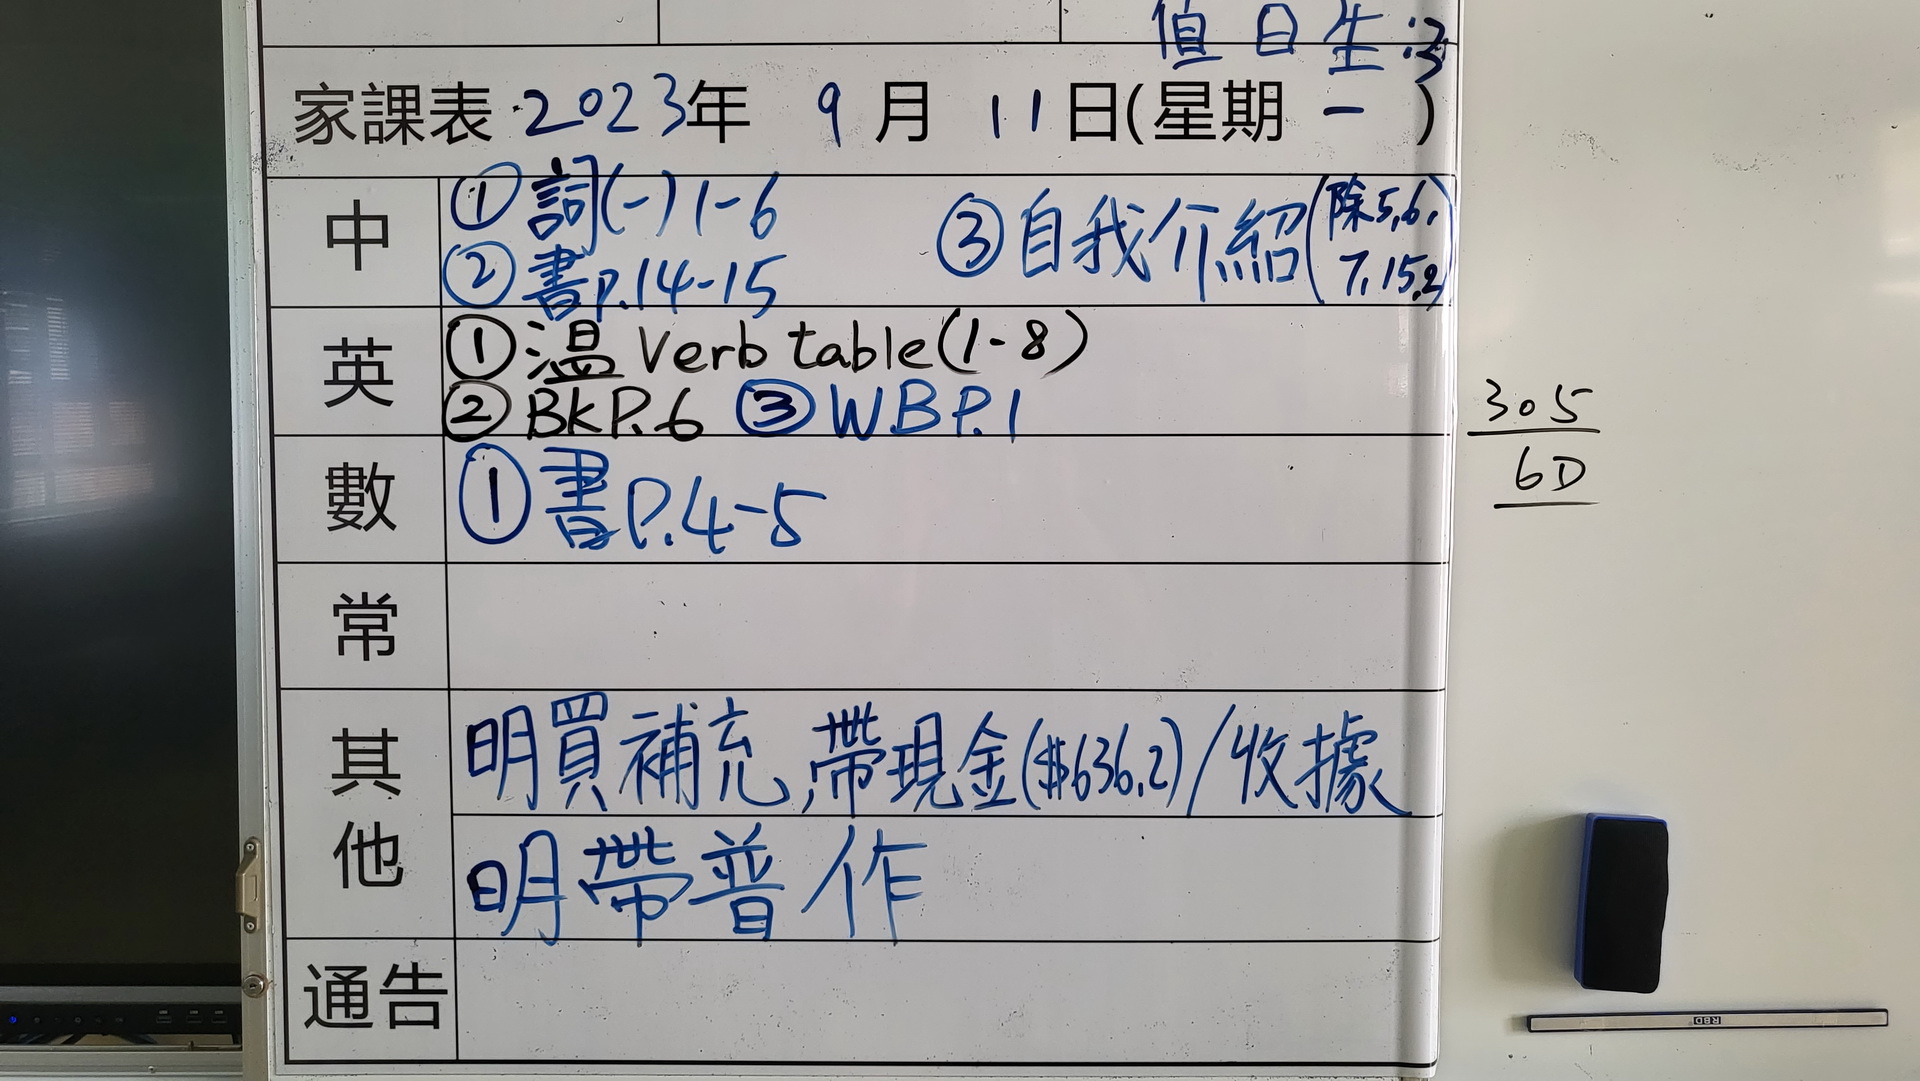 值日生:
家課表 2023年 9月 11日(星期一)
中
① 詞(一) 1-6
② 書p.14-15
③ 自我介紹(除5,6,
7,15,2
英
① 溫 Verb table(1-8)
② BkP.6 ③ WBP.1
數
① 書P.4-5
常
其他
明買補充,帶現金($636.2)/收據
明帶普作
通告
305
6D